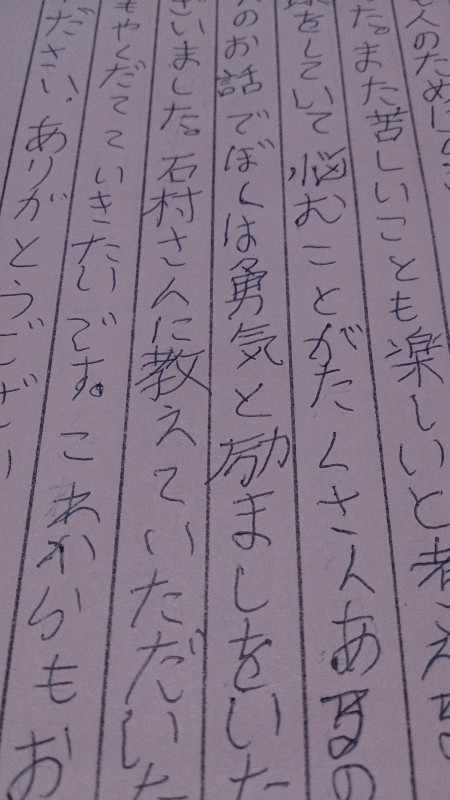 人のために
た。また苦しいことも楽しいと考える
をしていて悩むことがたくさんあるの
のお話でぼくは勇気と励ましをいた
ざいました。石村さんに教えていただいた
もやくだてていきたいです。これからもお
ださい。ありがとうござい